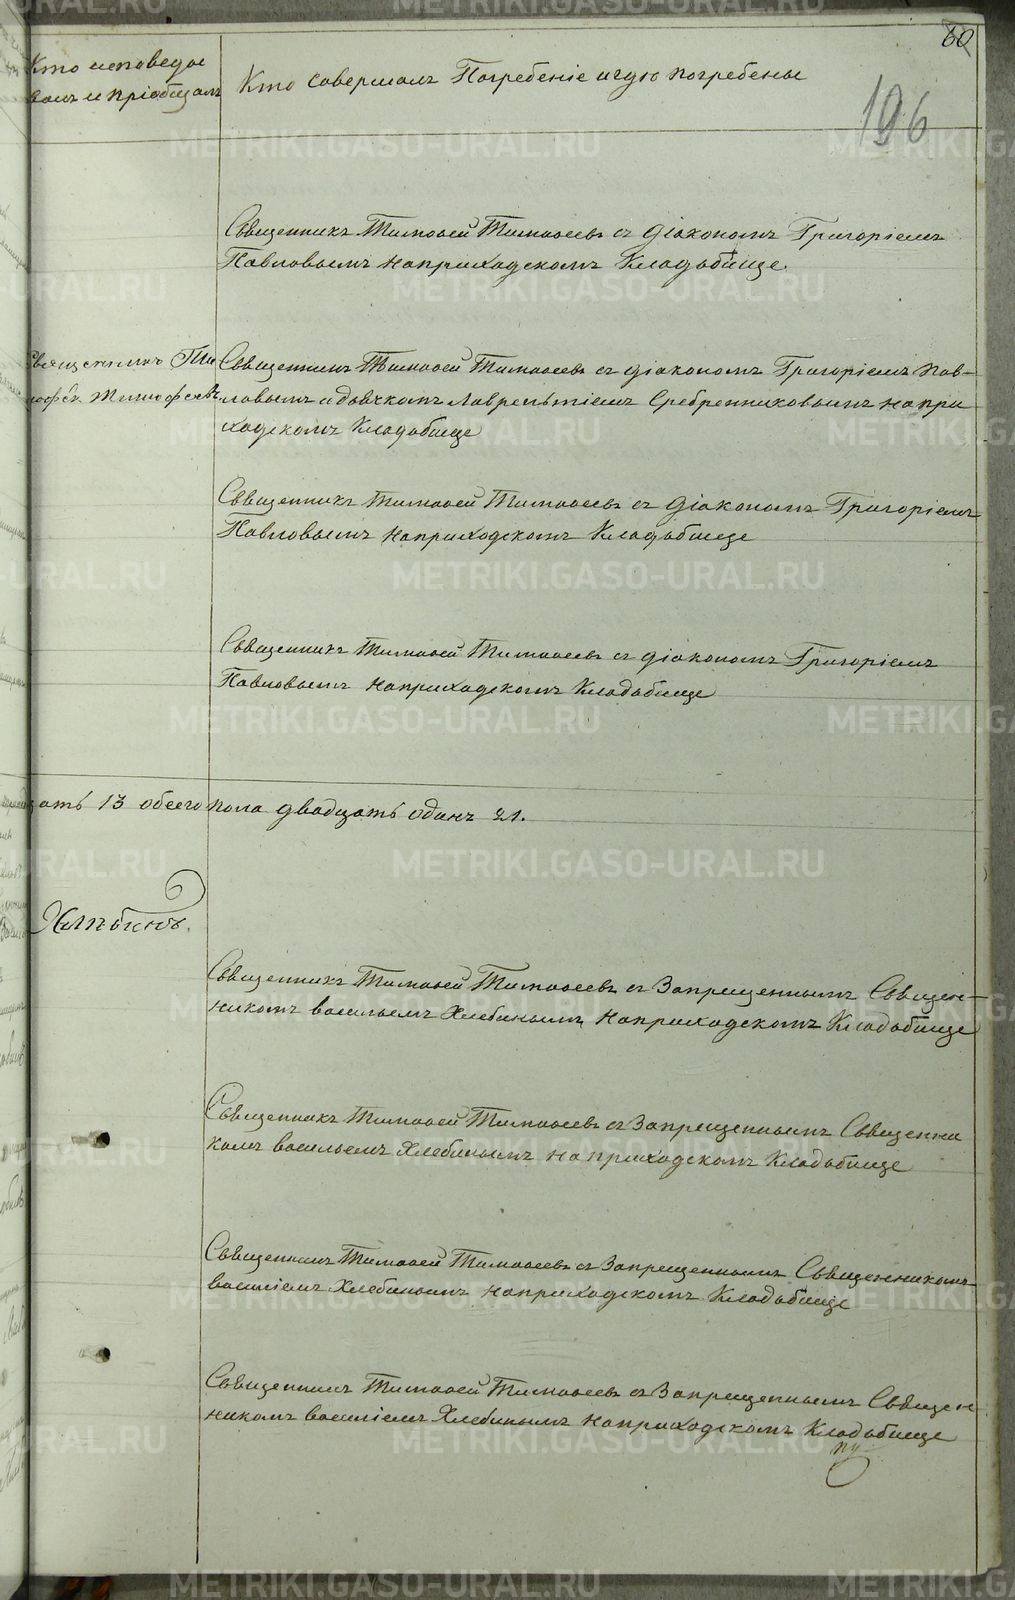 60
196
Кто исповедо
валъ и пріобщалъ
Кто совершалъ Погребеніе и гдѣ погребены
Священникъ Тимофей Тимофеевъ съ Діакономъ Григоріемъ
Павловымъ на приходскомъ Кладбище.
Священникъ Ти
мофей Тимофеевъ
Священникъ Тимофей Тимофеевъ съ діакономъ Григоріемъ Пав-
ловымъ и дьячкомъ Лаврентіемъ Серебренниковымъ на при
ходскомъ Кладбище
Священникъ Тимофей Тимофеевъ съ Діакономъ Григоріемъ
Павловымъ на приходскомъ Кладбище
Священникъ Тимофей Тимофеевъ съ діакономъ Григоріемъ
Павловымъ на приходскомъ Кладбище
цать 13 обоего пола двадцать одинъ 21.
Хлѣбинъ.
Священникъ Тимофей Тимофеевъ съ Запрещеннымъ Священ-
никомъ васильемъ Хлебинымъ на приходскомъ Кладбище
Священникъ Тимофей Тимофеевъ съ Запрещеннымъ Священни
комъ васильемъ Хлебинымъ на приходскомъ Кладбище
Священникъ Тимофей Тимофеевъ съ Запрещеннымъ Священникомъ
василіемъ Хлебинымъ на приходскомъ Кладбище
Священникъ Тимофей Тимофеевъ съ Запрещеннымъ Священ-
никомъ василіемъ Хлебинымъ на приходскомъ Кладбище
METRIKI.GASO-URAL.RU